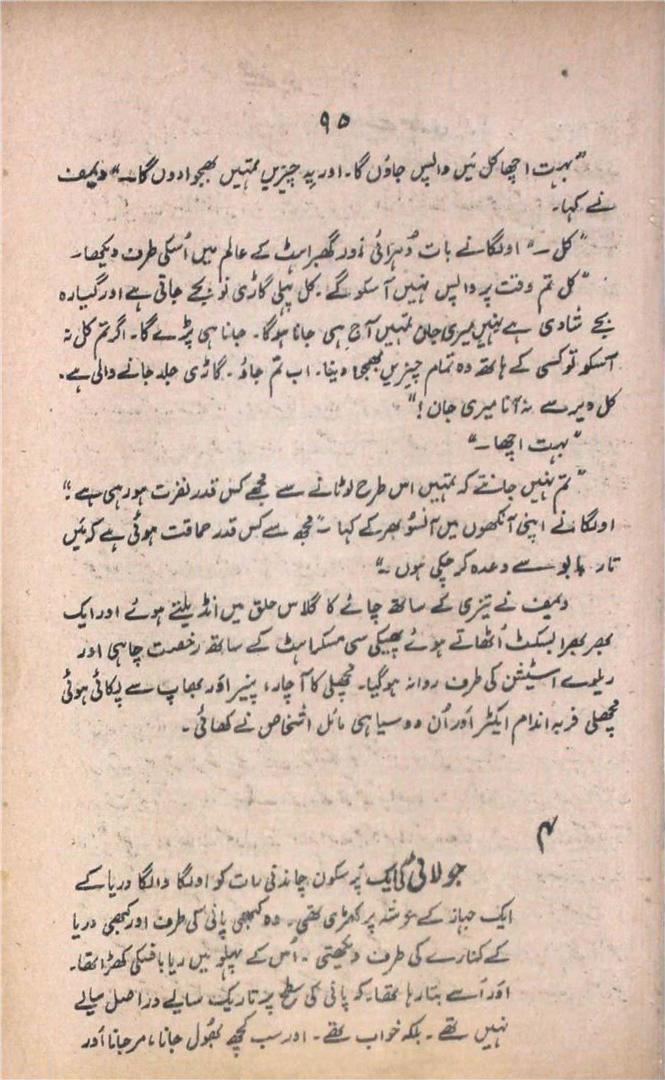 ۹۵
”بہت اچھا کل میں واپس جاؤں گا۔ اور یہ چیزیں تمہیں بھجوا دوں گا۔“ دیمف
نے کہا۔
”کل۔“ اولگا نے بات دُہرائی اور گھبراہٹ کے عالم میں اُسکی طرف دیکھا۔
”کل تم وقت پر واپس نہیں آسکو گے۔ کل پہلی گاڑی نو بجے جاتی ہے اور گیارہ
بجے شادی ہے نہیں میری جان تمہیں آج ہی جانا ہوگا۔ جانا ہی پڑے گا۔ اگر تم کل نہ
آسکو تو کسی کے ہاتھ وہ تمام چیزیں بھیج دینا۔ اب تم جاؤ۔ گاڑی جلد جانے والی ہے۔
کل دیر سے نہ آنا میری جان!“
”بہت اچھا۔“
”تم نہیں جانتے کہ تمہیں اس طرح لوٹانے سے مجھے کس قدر نفرت ہو رہی ہے“
اولگا نے اپنی آنکھوں میں آنسو بھر کے کہا۔ ”مجھ سے کس قدر حماقت ہوئی ہے کہ میں
تار بابو سے وعدہ کر چکی ہوں۔“
دیمف نے تیزی کے ساتھ چائے کا گلاس حلق میں انڈیلتے ہوئے اور ایک
بھربھرا بسکٹ اُٹھاتے ہوئے پھیکی سی مسکراہٹ کے ساتھ رخصت چاہی اور
ریلوے اسٹیشن کی طرف روانہ ہوگیا۔ مچھلی کا آچار، پنیر اور بھاپ سے پکائی ہوئی
مچھلی فربہ اندام ایکٹر اور اُن دو سیاہی مائل اشخاص نے کھائی۔
۴
جولائی کی ایک پُرسکون چاندنی رات کو اولگا والگا دریا کے
ایک جہاز کے عرشہ پر کھڑی تھی۔ وہ کبھی پانی کی طرف اور کبھی دریا
کے کنارے کی طرف دیکھتی۔ اُس کے پہلو میں ریابافسکی کھڑا تھا۔
اور اُسے بتا رہا تھا۔ کہ پانی کی سطح پر تاریک سایے دراصل سایے
نہیں تھے۔ بلکہ خواب تھے۔ اور سب کچھ بھول جانا، مرجانا اور